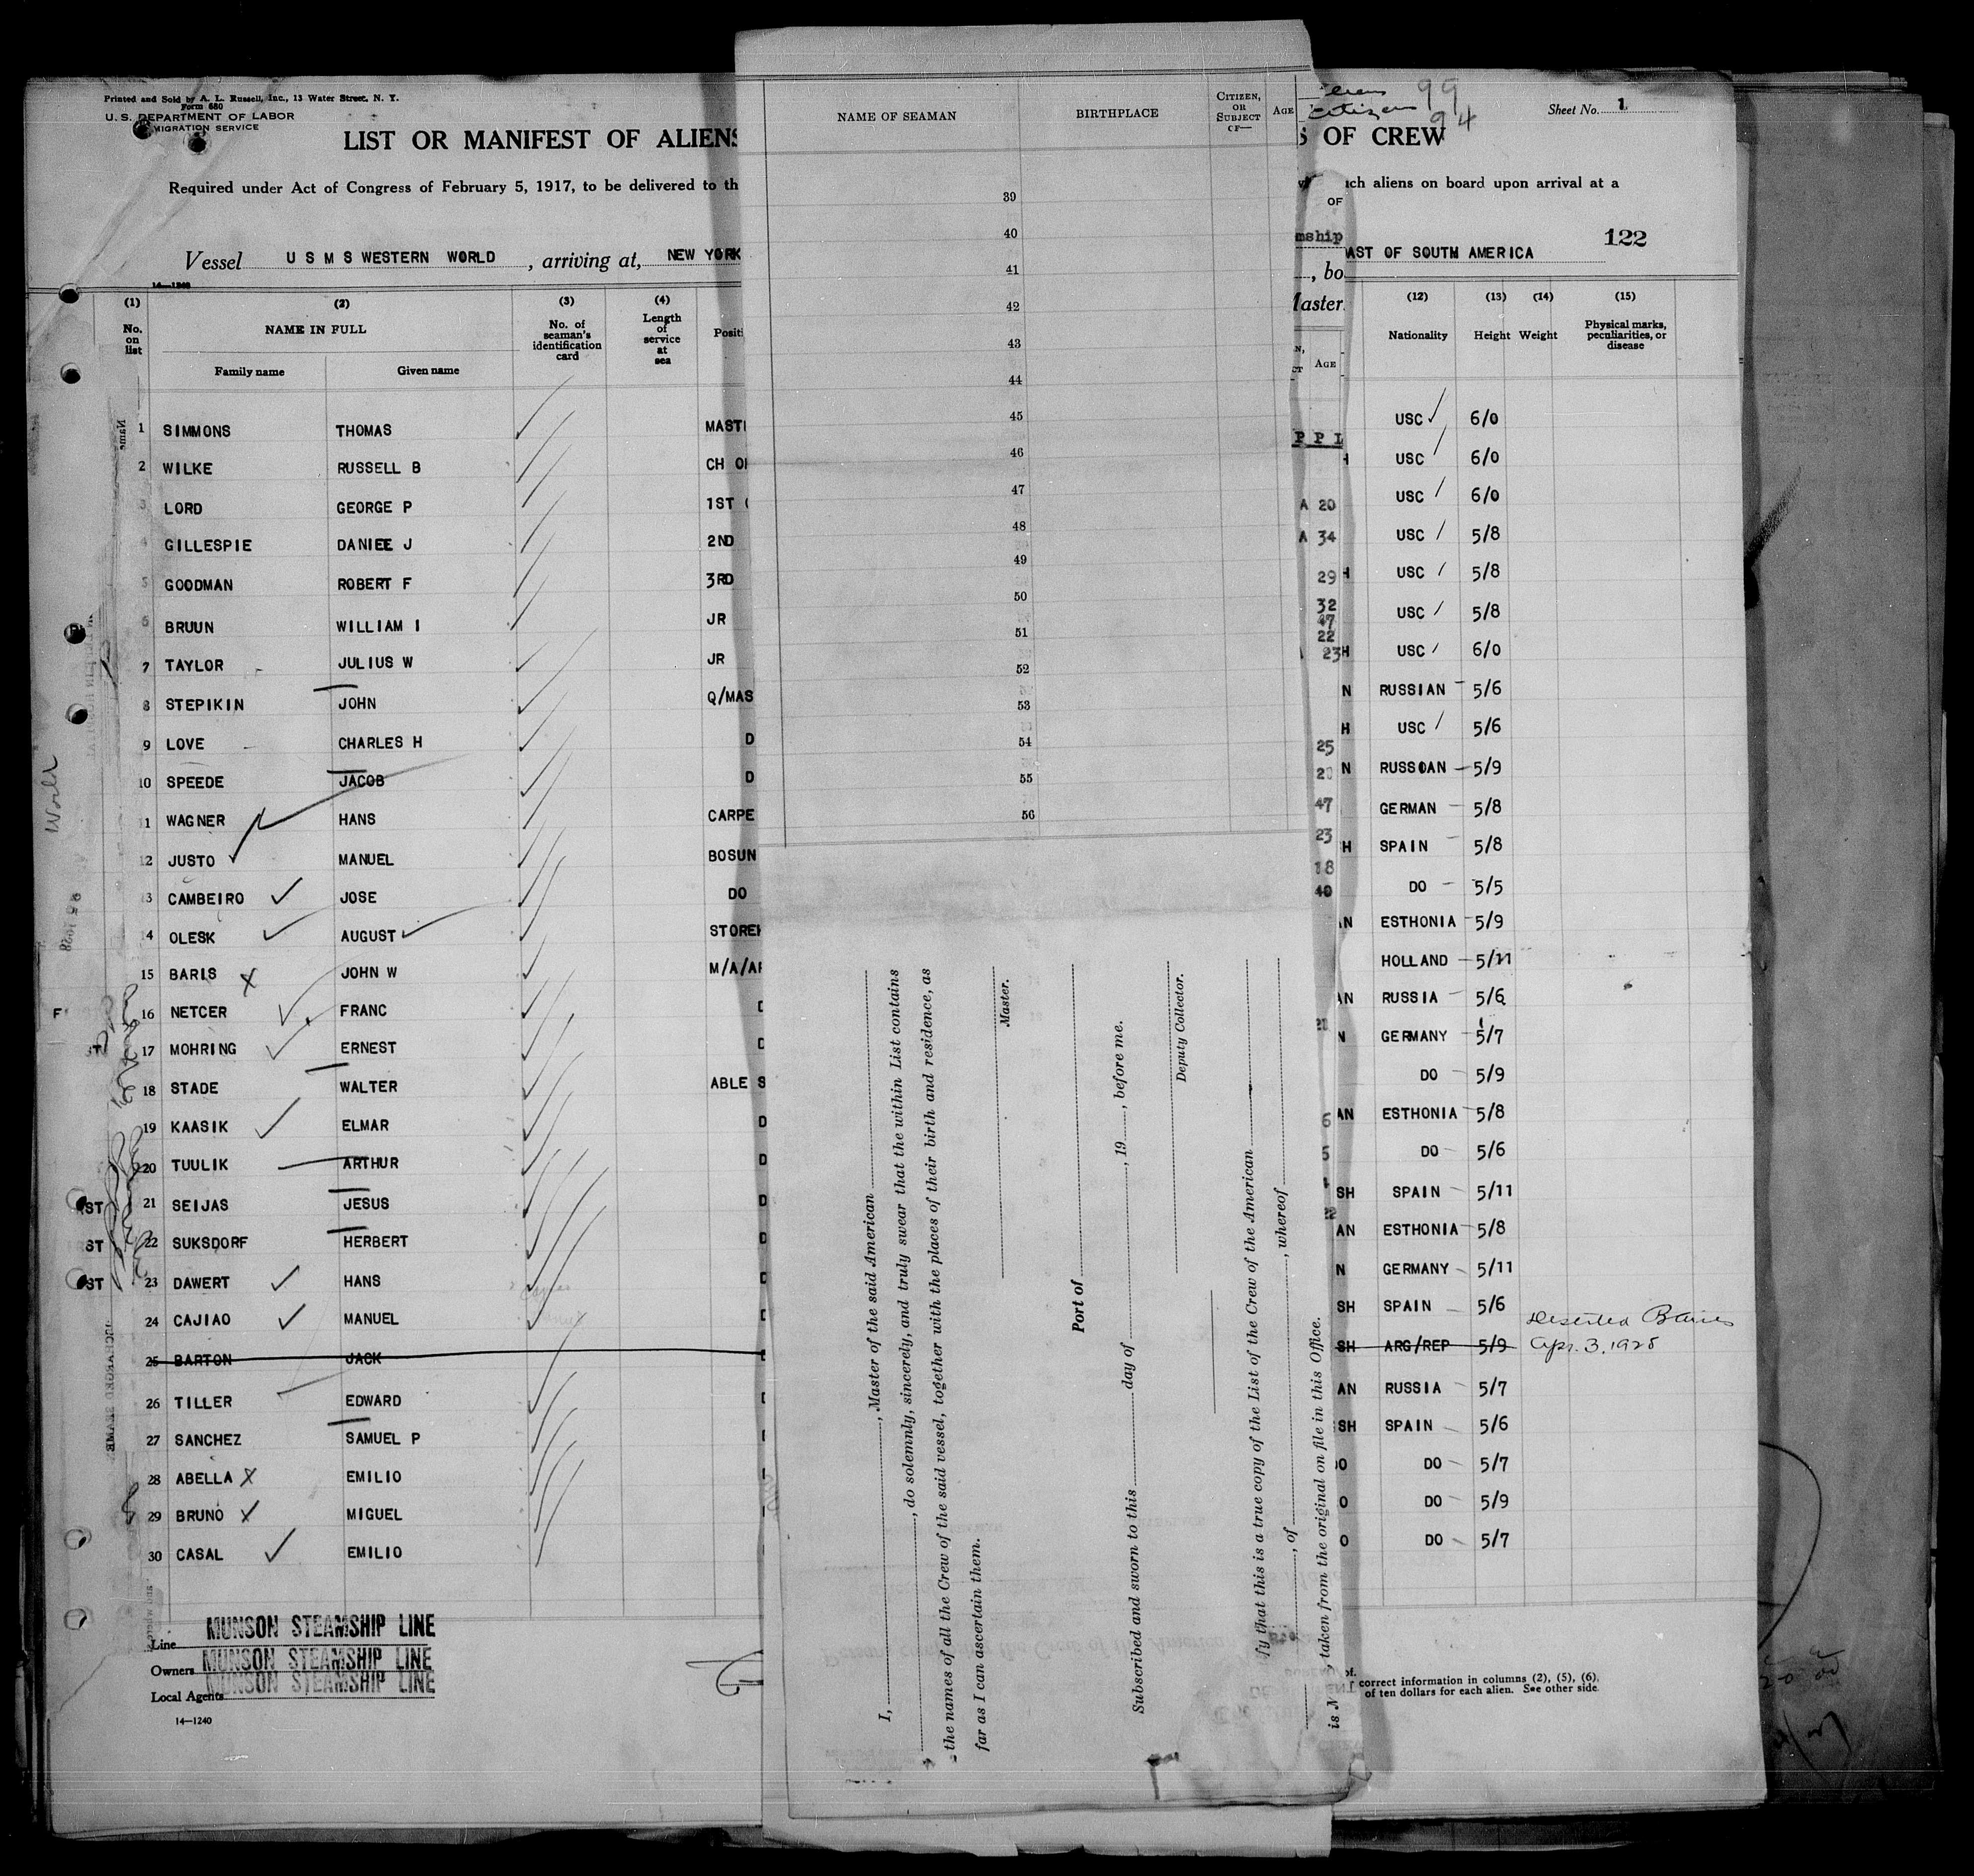 Printed and Sold by A. L. Russell, Inc., 13 Water Street, N. Y.
Form 680
U. S. DEPARTMENT OF LABOR
MIGRATION SERVICE
LIST OR MANIFEST OF ALIENS
Required under Act of Congress of February 5, 1917, to be delivered to th
Vessel U S M S WESTERN WORLD , arriving at, NEW YORK
14—1240
(1) (2) (3) (4)
No. on list
NAME IN FULL
Family name Given name
No. of seaman's identification card
Length of service at sea
Positi
1 SIMMONS THOMAS MAST
2 WILKE RUSSELL B CH O
3 LORD GEORGE P 1ST
4 GILLESPIE DANIEE J 2ND
5 GOODMAN ROBERT F 3RD
6 BRUUN WILLIAM I JR
7 TAYLOR JULIUS W JR
8 STEPIKIN JOHN Q/MAS
9 LOVE CHARLES H D
10 SPEEDE JACOB D
11 WAGNER HANS CARPE
12 JUSTO MANUEL BOSUN
13 CAMBEIRO JOSE DO
14 OLESK AUGUST STORE
15 BARIS JOHN W M/A/A
16 NETCER FRANC D
17 MOHRING ERNEST D
18 STADE WALTER ABLE S
19 KAASIK ELMAR D
20 TUULIK ARTHUR D
21 SEIJAS JESUS D
22 SUKSDORF HERBERT D
23 DAWERT HANS D
24 CAJIAO MANUEL
25 BARTON JACK
26 TILLER EDWARD
27 SANCHEZ SAMUEL P
28 ABELLA EMILIO
29 BRUNO MIGUEL
30 CASAL EMILIO
Line MUNSON STEAMSHIP LINE
Owners MUNSON STEAMSHIP LINE
Local Agents MUNSON STEAMSHIP LINE
14—1240
NAME OF SEAMAN BIRTHPLACE CITIZEN, OR SUBJECT OF— AGE
39
40
41
42
43
44
45
46
47
48
49
50
51
52
53
54
55
56
I, , Master of the said American
, do solemnly, sincerely, and truly swear that the within List contains
the names of all the Crew of the said vessel, together with the places of their birth and residence, as
far as I can ascertain them.
Master.
Port of
Subscribed and sworn to this day of , 19 , before me.
Deputy Collector.
fy that this is a true copy of the List of the Crew of the American
, of , whereof
is M , taken from the original on file in this Office.
Citizen 99
94
Sheet No. 1
S OF CREW
uch aliens on board upon arrival at a
OF
mship
AST OF SOUTH AMERICA 122
, bo
Master.
AGE
P P L
A 20
A 34
29
32
47
22
23
25
47
23
18
40
(12) (13) (14) (15)
Nationality Height Weight Physical marks, peculiarities, or disease
USC 6/0
USC 6/0
USC 6/0
USC 5/8
USC 5/8
USC 5/8
USC 6/0
RUSSIAN 5/6
USC 5/6
RUSSOAN 5/9
GERMAN 5/8
SPAIN 5/8
DO 5/5
ESTHONIA 5/9
HOLLAND 5/11
RUSSIA 5/6
GERMANY 5/7
DO 5/9
ESTHONIA 5/8
DO 5/6
SPAIN 5/11
ESTHONIA 5/8
GERMANY 5/11
SPAIN 5/6
ARG/REP 5/9 Deserted BAires Apr. 3, 1928
RUSSIA 5/7
SPAIN 5/6
DO 5/7
DO 5/9
DO 5/7
correct information in columns (2), (5), (6),
of ten dollars for each alien. See other side.